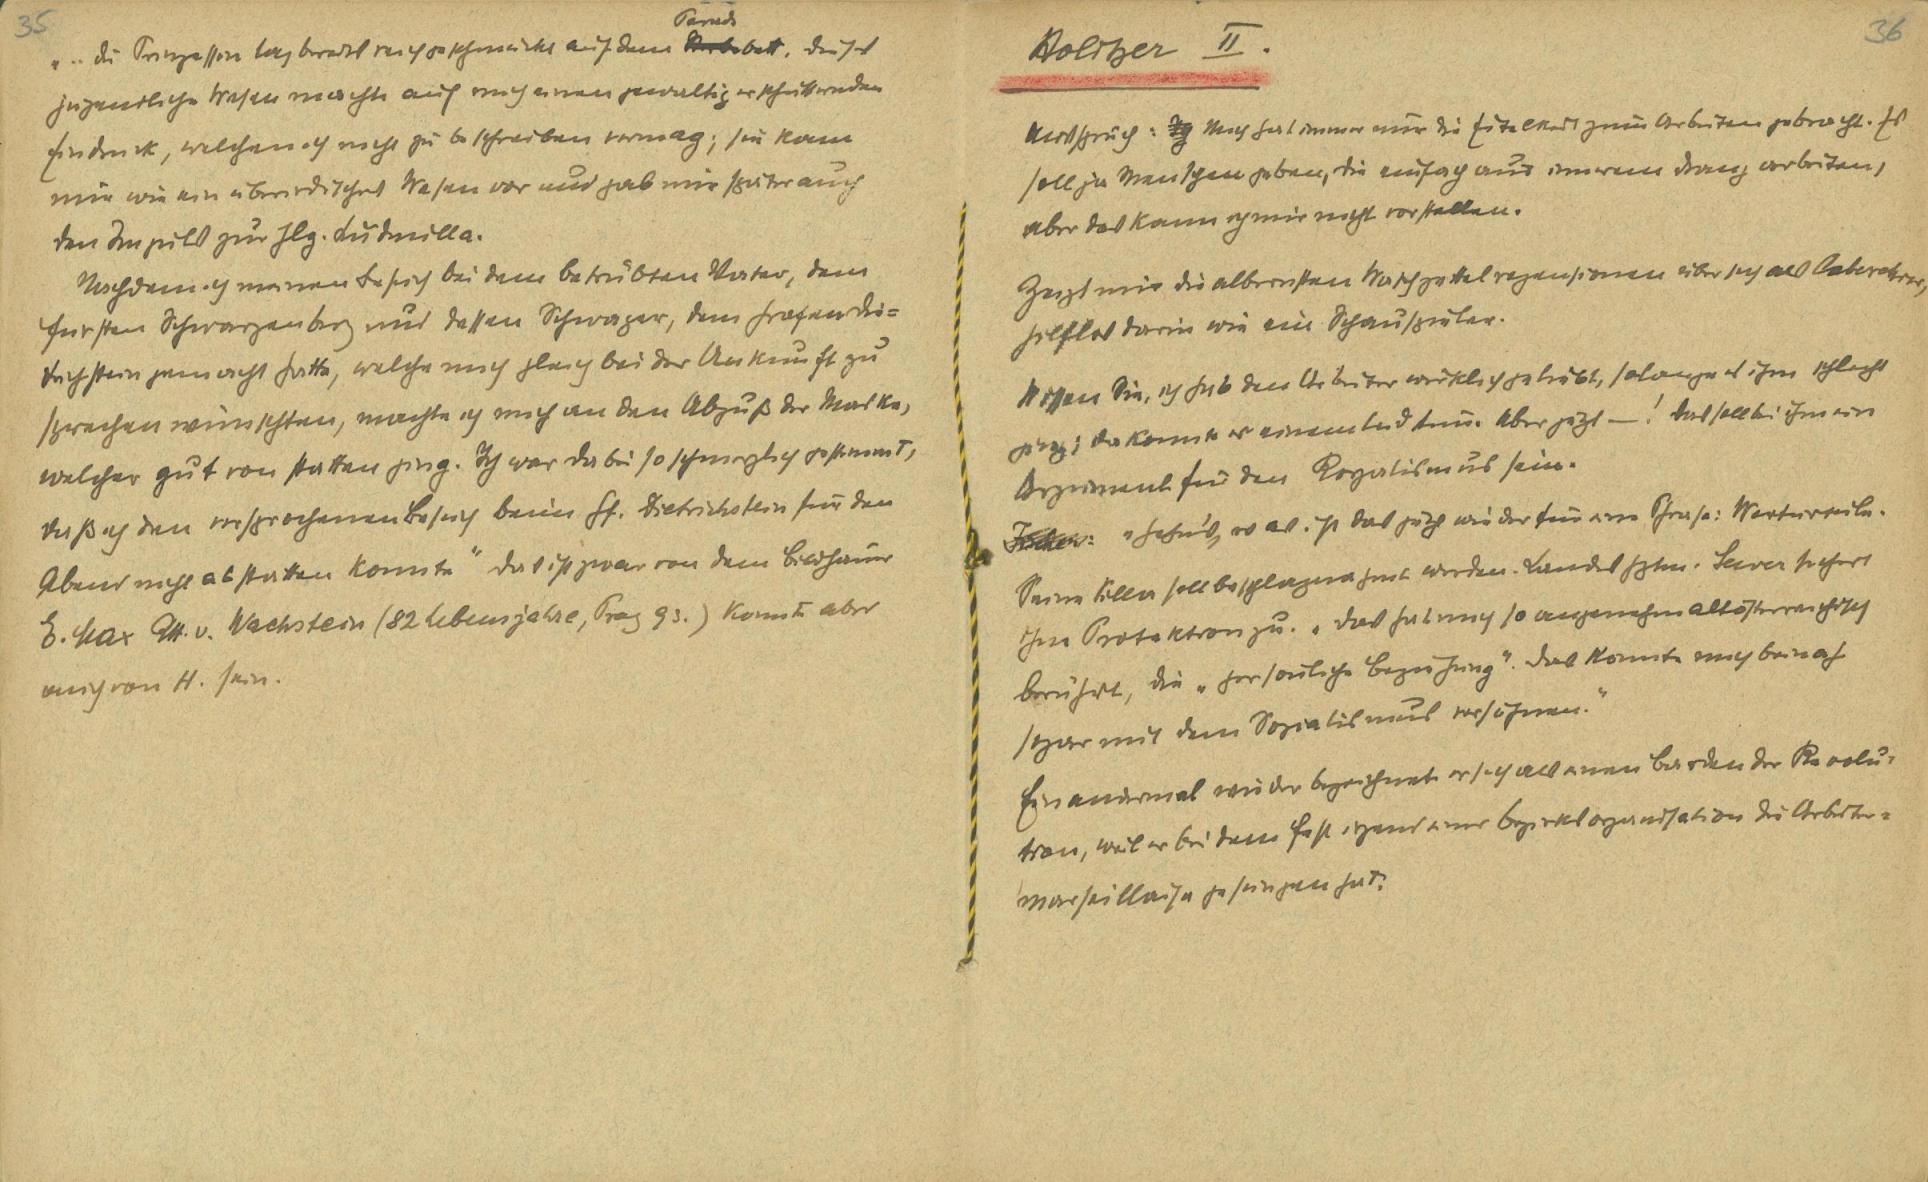 35
„.. die Prinzessin lag bereits reich geschmückt auf dem Parade Sterbebett. Dieses
jugendliche Wesen machte auf mich einen gewaltig erschütternden
Eindruck, welchen ich nicht zu beschreiben vermag; sie kam
mir wie ein überirdisches Wesen vor und gab mir später auch
den Impuls zur Hlg. Ludmilla.
Nachdem ich meinen Besuch bei dem betrübten Vater, dem
Fürsten Schwarzenberg und dessen Schwager, dem Grafen Die=
trichstein gemacht hatte, welche mich gleich bei der Ankunft zu
sprechen wünschten, machte ich mich an den Abguß der Maske,
welcher gut von statten ging. Ich war dabei so schmerzlich gestimmt,
daß ich den versprochenen Besuch beim Gf. Dietrichstein für den
Abend nicht abstatten konnte“ Das ist zwar von dem Bildhauer
E. Max Rtt. v. Wachstein (82 Lebensjahre, Prag 93.) könnte aber
auch von H. sein.
36
Holitzer II.
Ausspruch: Mich hat immer nur die Eitelkeit zum Arbeiten gebracht. Es
soll ja Menschen geben, die einfach aus innerem Drang arbeiten,
aber das kann ich mir nicht vorstellen.
Zeigt mir die albernsten Waschzettelrezensionen über sich als
hilflos darin wie ein Schauspieler.
Wissen Sie, ich hab den Arbeiter wirklich geliebt, solange es ihm schlecht
ging; da konnte er einem leid tun. Aber jetzt —! Das soll bei ihm ein
Argument für den Royalismus sein.
„Sehn's, was ist das jetzt wieder für eine Phrase:
Seine Villa soll beschlagnahmt werden. Landeshptm. Sever sichert
ihm Protektion zu. „Das hat mich so angenehm altösterreichisch
berührt, die „persönliche Beziehung“. Das könnte mich beinah
sogar mit dem Sozialismus versöhnen.“
Ein andermal wieder bezeichnet er sich als einen Barden der Revolu=
tion, weil er bei dem Fest irgend einer Bezirksorganisation die Arbeiter=
marseillaise gesungen hat.